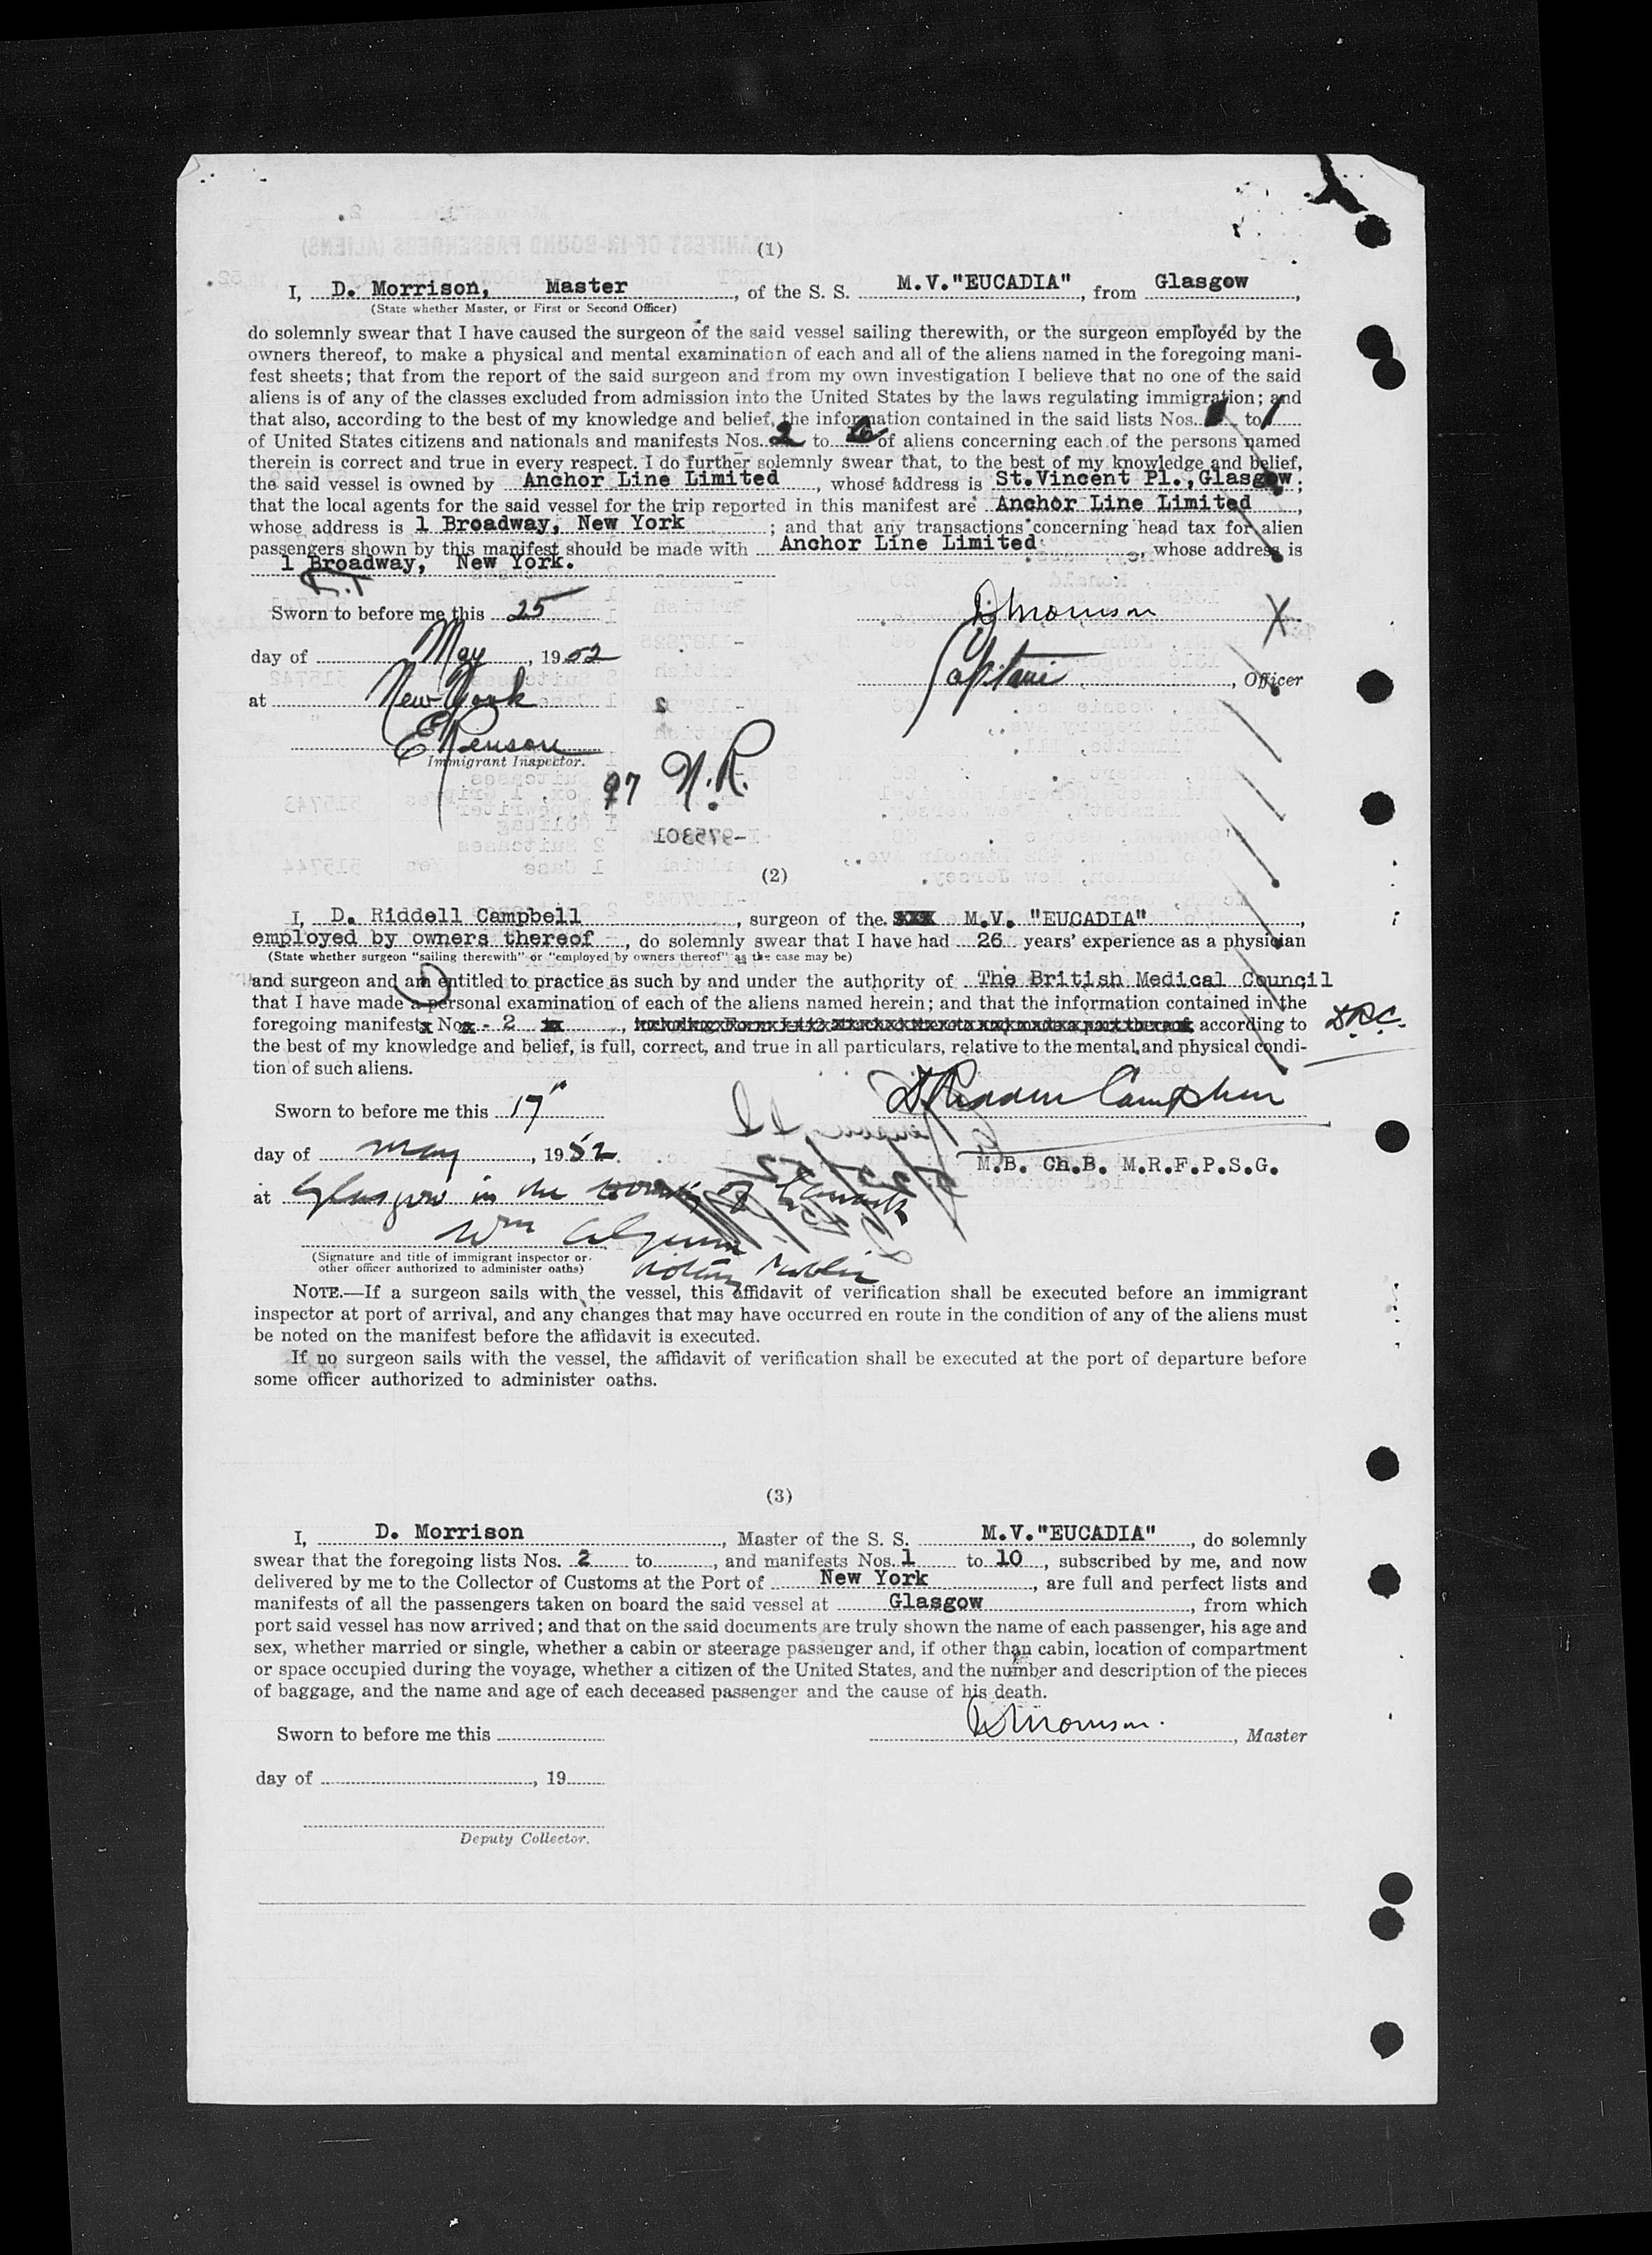 (1)
I, D. Morrison, Master, of the S. S. M.V."EUCADIA", from Glasgow,
(State whether Master, or First or Second Officer)
do solemnly swear that I have caused the surgeon of the said vessel sailing therewith, or the surgeon employed by the
owners thereof, to make a physical and mental examination of each and all of the aliens named in the foregoing mani-
fest sheets; that from the report of the said surgeon and from my own investigation I believe that no one of the said
aliens is of any of the classes excluded from admission into the United States by the laws regulating immigration; and
that also, according to the best of my knowledge and belief, the information contained in the said lists Nos. to 1
of United States citizens and nationals and manifests Nos. 2 to of aliens concerning each of the persons named
therein is correct and true in every respect. I do further solemnly swear that, to the best of my knowledge and belief,
the said vessel is owned by Anchor Line Limited, whose address is St.Vincent Pl.,Glasgow;
that the local agents for the said vessel for the trip reported in this manifest are Anchor Line Limited,
whose address is 1 Broadway, New York; and that any transactions concerning head tax for alien
passengers shown by this manifest should be made with Anchor Line Limited, whose address is
1 Broadway, New York.
Sworn to before me this 25
D Morrison
X
day of May, 1952
Captain, Officer
at New York
Immigrant Inspector.
97 N.R.
(2)
I, D. Riddell Campbell, surgeon of the XXX M.V. "EUCADIA",
employed by owners thereof, do solemnly swear that I have had 26 years' experience as a physician
(State whether surgeon "sailing therewith" or "employed by owners thereof" as the case may be)
and surgeon and am entitled to practice as such by and under the authority of The British Medical Council
that I have made a personal examination of each of the aliens named herein; and that the information contained in the
foregoing manifestx Nox - 2 xx, according to D.R.C.
the best of my knowledge and belief, is full, correct, and true in all particulars, relative to the mental and physical condi-
tion of such aliens.
Sworn to before me this 17"
D Riddell Campbell
day of may, 1952.
M.B. Ch.B. M.R.F.P.S.G.
at Glasgow in the County of Lanark
Wm
(Signature and title of immigrant inspector or
other officer authorized to administer oaths)
Notary Public
NOTE.—If a surgeon sails with the vessel, this affidavit of verification shall be executed before an immigrant
inspector at port of arrival, and any changes that may have occurred en route in the condition of any of the aliens must
be noted on the manifest before the affidavit is executed.
If no surgeon sails with the vessel, the affidavit of verification shall be executed at the port of departure before
some officer authorized to administer oaths.
(3)
I, D. Morrison, Master of the S. S. M.V."EUCADIA", do solemnly
swear that the foregoing lists Nos. 2 to, and manifests Nos. 1 to 10, subscribed by me, and now
delivered by me to the Collector of Customs at the Port of New York, are full and perfect lists and
manifests of all the passengers taken on board the said vessel at Glasgow, from which
port said vessel has now arrived; and that on the said documents are truly shown the name of each passenger, his age and
sex, whether married or single, whether a cabin or steerage passenger and, if other than cabin, location of compartment
or space occupied during the voyage, whether a citizen of the United States, and the number and description of the pieces
of baggage, and the name and age of each deceased passenger and the cause of his death.
D Morrison.
Sworn to before me this, Master
day of, 19
Deputy Collector.